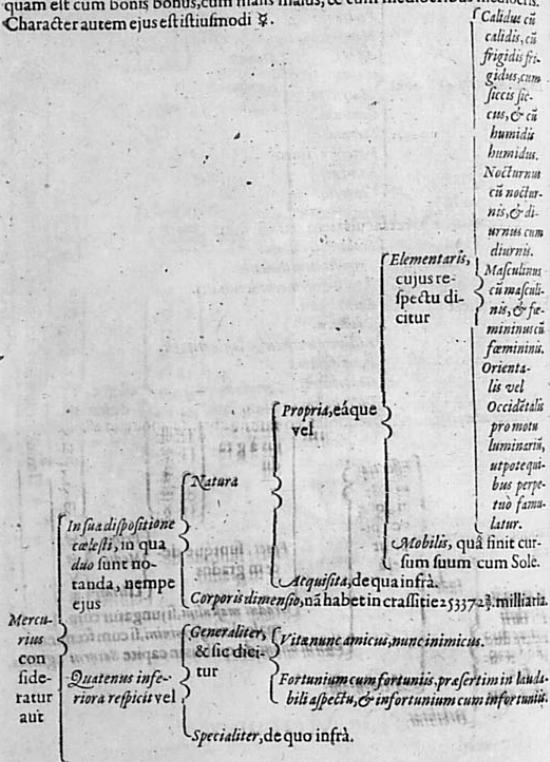 quam est cum bonis bonus, cum malis malus, & cum mediocribus mediocris.
Character autem ejus est istiusmodi ☿.
Mercu-
rius
con
side-
ratur
aut
In sua dispositione
cœlesti, in qua
duo sunt no-
tanda, nempe
ejus
Natura
Propria, eáque
vel
Elementaris,
cujus re-
spectu di-
citur
Calidus cũ
calidis, cũ
frigidis fri-
gidus, cum
siccis sic-
cus, & cũ
humidis
humidus.
Nocturnus
cũ noctur-
nis, & di-
urnus cum
diurnis.
Masculinus
cũ masculi-
nis, & fœ-
mininus cũ
fœmininis.
Orienta-
lis vel
Occidẽtalis
pro motu
luminariũ,
utpote qui-
bus perpe-
tuò famu-
latur.
Mobilis, quâ finit cur-
sum suum cum Sole.
Acquisita, de qua infrà.
Corporis dimensio, nã habet in crassitie 253372 milliaria.
Quatenus infe-
riora respicit vel
Generaliter,
& sic dici-
tur
Vitæ nunc amicus, nunc inimicus.
Fortunium cum fortuniis, præsertim in lauda-
bili aspectu, & infortunium cum infortuniis.
Specialiter, de quo infrà.